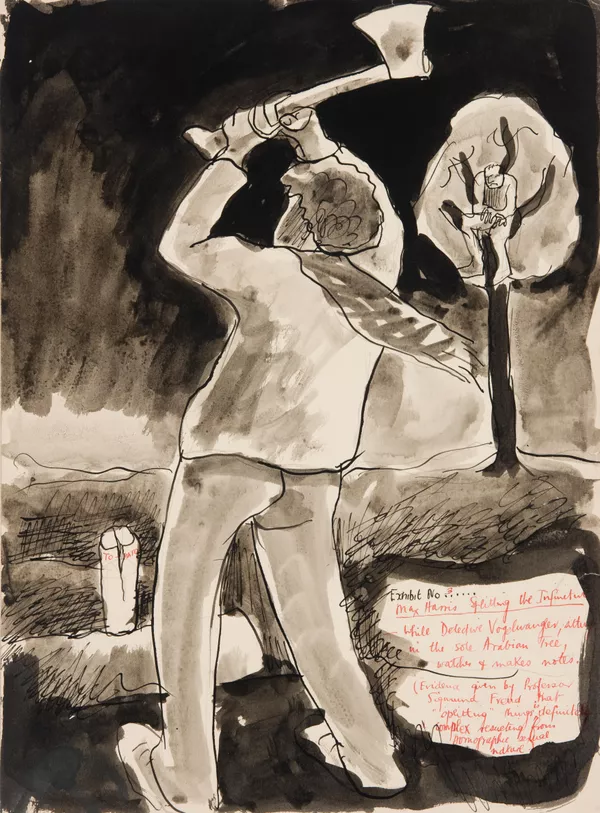 TO MATE
Exhibit No 3.....
Max Harris Splitting the Infinitive
- While Detective Vogelwanger,
in the sole Arabian Tree,
watches & makes notes.
(Evidence given by Professor
Sigmund Freud that
"splitting" things definitely
complex resulting from
pornographic sexual
nature